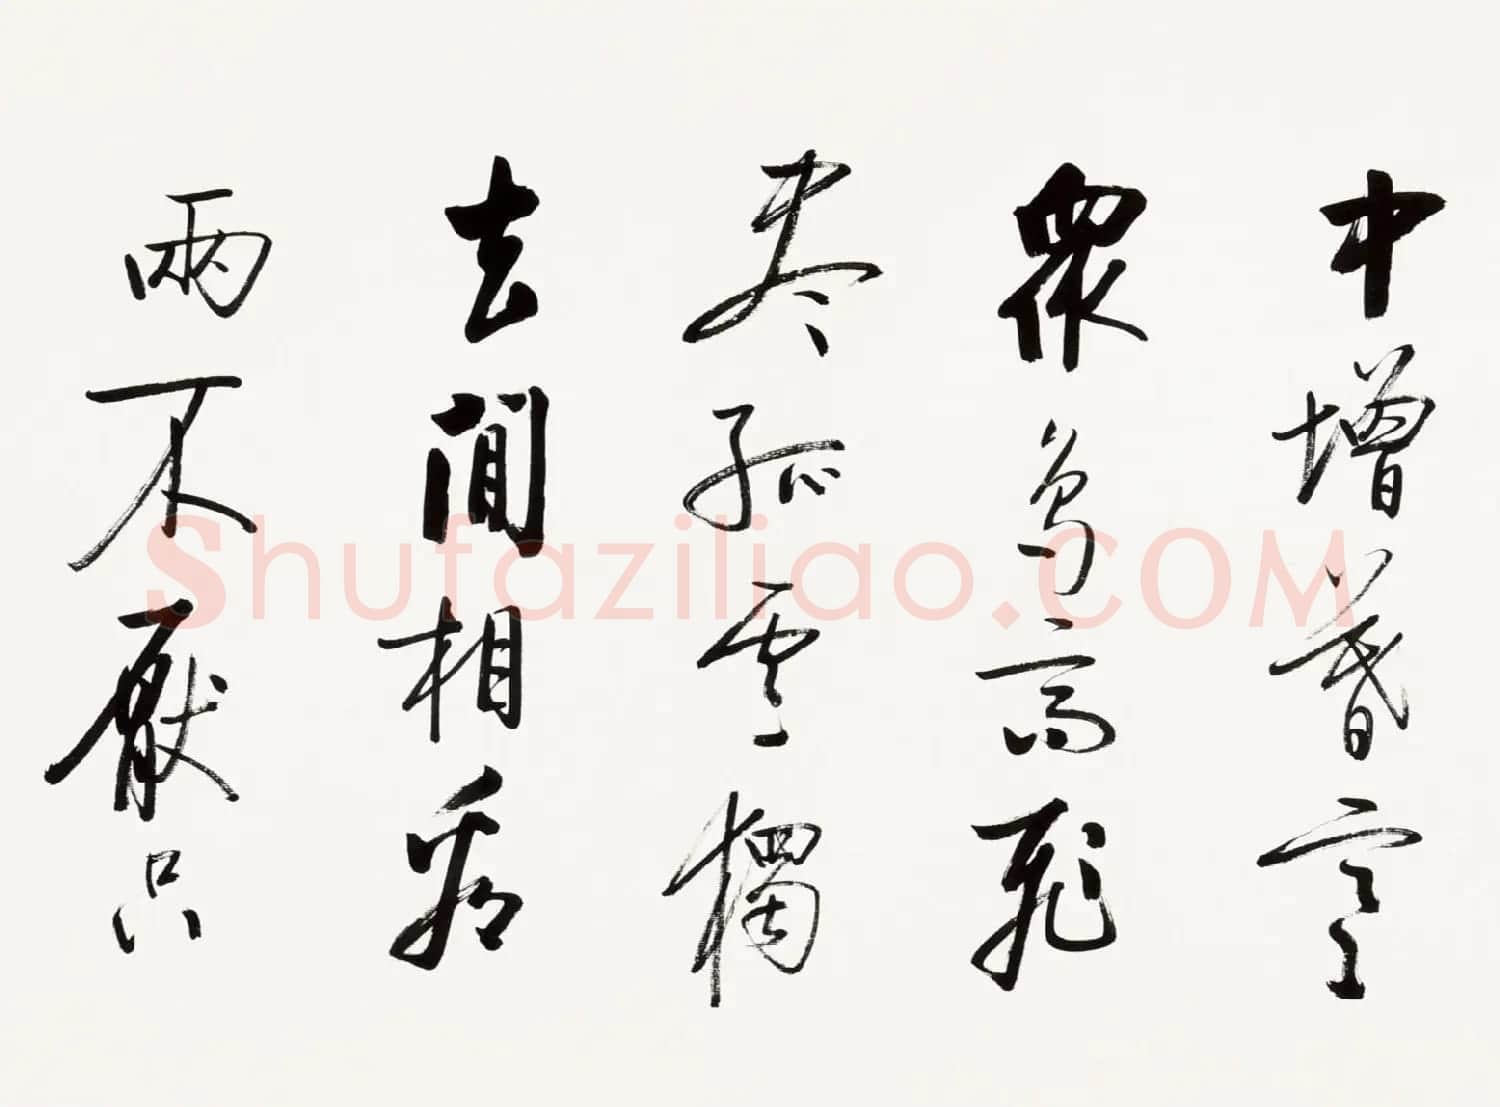 中增暮寒
眾鳥高飛
盡孤雲獨
去閒相看
兩不厭只
Shufaziliao.COM